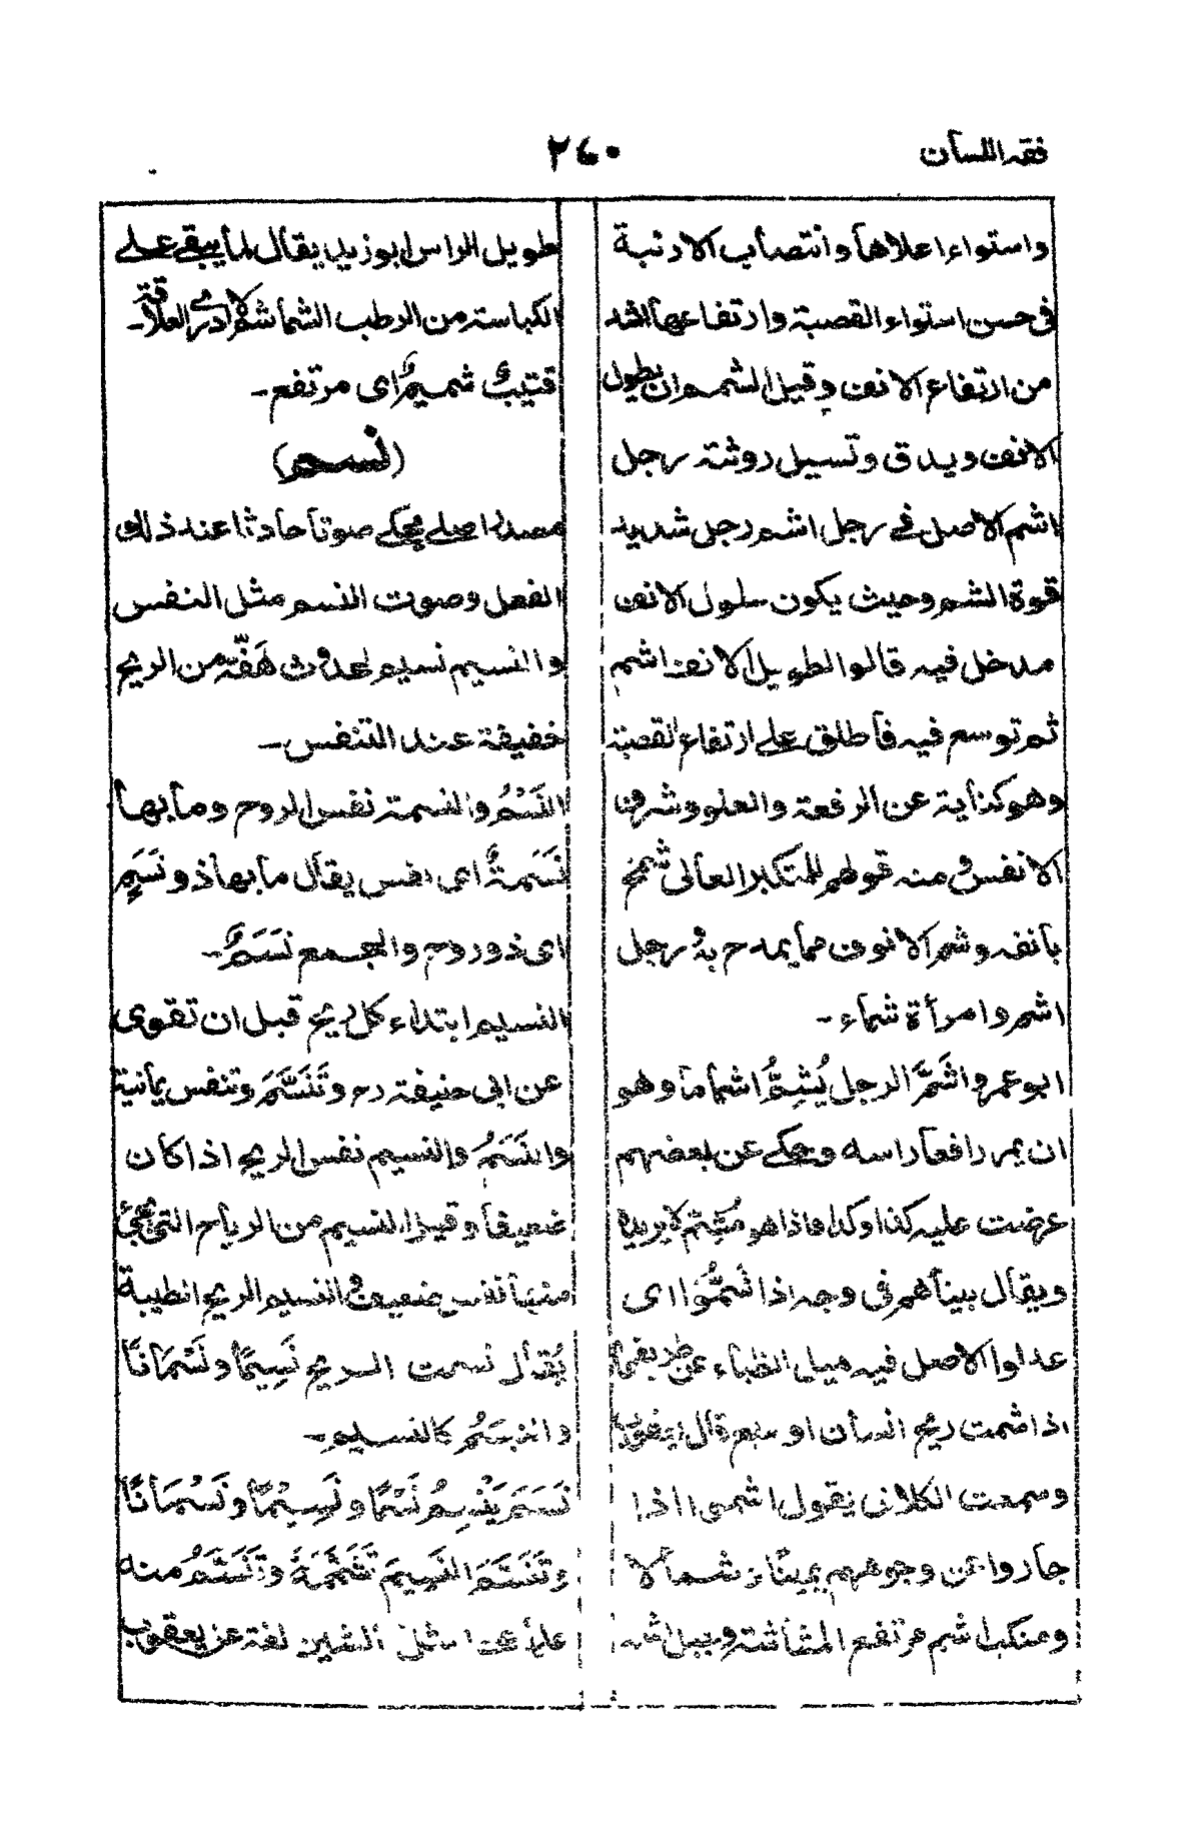 فقه اللسان
٢٤٠
واستواء اعلاها وانتصاب الارنبة
فى حسن استواء القصبة وارتفاعها اشد
من ارتفاع الانف وقيل الشمم ان يطول
الانف ويدق وتسيل روثته رجل
اشم الاصل فى رجل اشم رجل شديد
قوة الشم وحيث يكون سلول الانف
مدخل فيه قالوا لطويل الانف اشم
ثم توسع فيه فاطلق على ارتفاع القصبة
وهو كناية عن الرفعة والعلو وشرف
الانفس ومنه قولهم للمتكبر العالى شمخ
بانفه وشم الانوف مما يمدح به ورجل
اشم وامرأة شماء ـ
ابو عمرو اشَمَّ الرجل يُشِمُّ اشماما وهو
ان يمر رافعا راسه وحكى عن بعضهم
عرضت عليه كذا وكذا فاذا هو مُشِمّ لا يريده
ويقال بيناهم فى وجه اذا شَمُّوا اى
عدلوا الاصل فيه ميل الظباء عن طريقها
اذا شمت ريح انسان او سبع قال يعقوب
وسمعت الكلابى يقول اشموا اذا
جاروا عن وجوههم يمينًا وشمالا
ومنكب اشم مرتفع المشاشة وجبل اشم
طويل الراس ابو زيد يقال لما يبقى على
الكباسة من الرطب الشماشم لا ادرى العلاقة ـ
قتيبٌ شميمٌ اى مرتفع ـ
(نسم)
مصدر اصلى يحكى صوتا حادثا عند ذلك
الفعل وصوت النسم مثل النفس
والنسيم نسيم لحدوث هَفّة من الريح
خفيفة عند التنفس ـ
النَسْمُ والنسمة نفس الروح وما بها
نَسَمةٌ اى نفس يقال ما بها ذو نَسَمٍ
اى ذو روح والجمع نَسَمٌ ـ
النسيم ابتداء كل ريح قبل ان تقوى
عن ابى حنيفة رح وتَنَسَّمَ وتنفس يمانية
والنَسَمُ والنسيم نفس الريح اذا كان
ضعيفا وقيل النسيم من الرياح التى يجئ
منها نفس ضعيف والنسيم الريح الطيبة
يُقال نسمت الريح نَسِيمًا ونَسَمانًا
والنيسَمُ كالنسيم ـ
نَسَمَ يَنْسِمُ نَسْمًا ونَسِيْمًا ونَسْمَانًا
وتَنَسَّمَ النَسِيمَ تَشَمَّمَهُ وتَنَسَّمُ منه
علما على مثل الشين لغة عن يعقوب